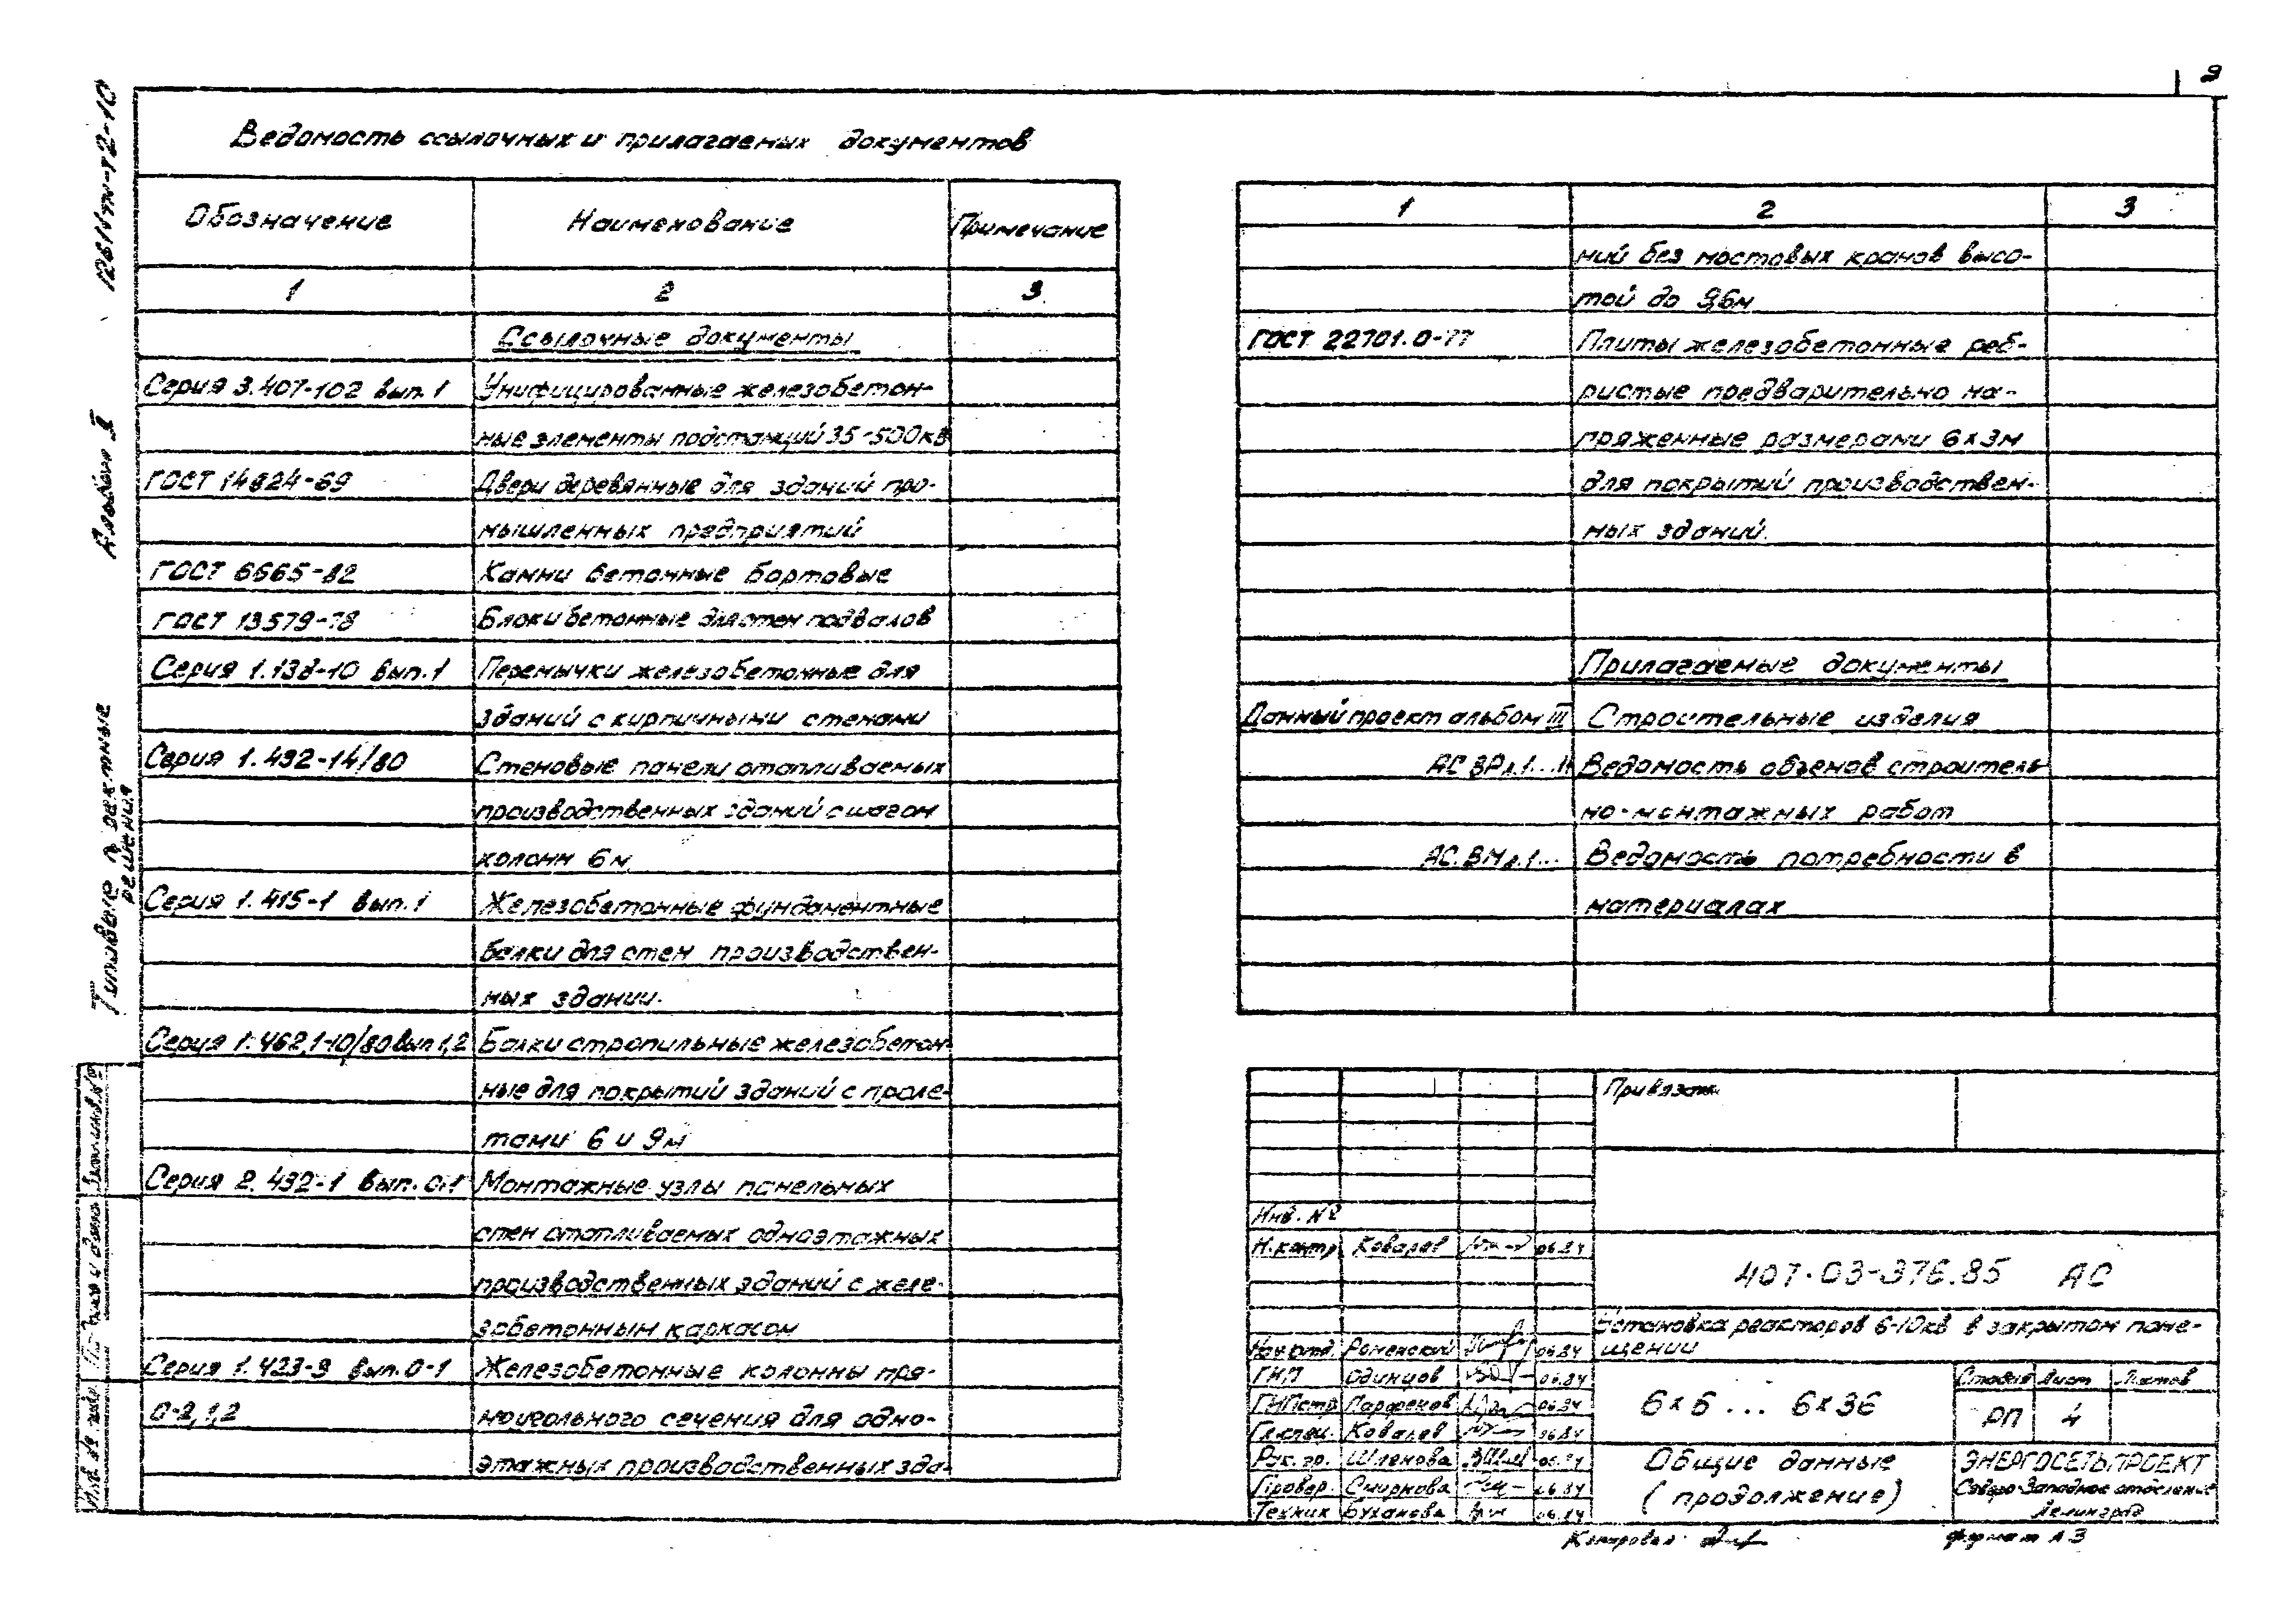 9
Ведомость ссылочных и прилагаемых документов
Обозначение Наименование Примечание
1 2 3
Ссылочные документы
Серия 3.407-102 вып. 1 Унифицированные железобетон-
ные элементы подстанций 35-500кв
ГОСТ 14624-69 Двери деревянные для зданий про-
мышленных предприятий
ГОСТ 6665-82 Камни бетонные бортовые
ГОСТ 13579-78 Блоки бетонные для стен подвалов
Серия 1.138-10 вып.1 Перемычки железобетонные для
зданий с кирпичными стенами
Серия 1.432-14/80 Стеновые панели отапливаемых
производственных зданий с шагом
колонн 6м
Серия 1.415-1 вып.1 Железобетонные фундаментные
балки для стен производствен-
ных зданий.
Серия 1.462.1-10/80 вып 1,2 Балки стропильные железобетон-
ные для покрытий зданий с проле-
тами 6 и 9м
Серия 2.432-1 вып. 0,1 Монтажные узлы панельных
стен отапливаемых одноэтажных
производственных зданий с желе-
зобетонным каркасом
Серия 1.423-3 вып. 0-1 Железобетонные колонны пря-
0-2,1,2 моугольного сечения для одно-
этажных производственных зда-
1 2 3
ний без мостовых кранов высо-
той до 9,6м
ГОСТ 22701.0-77 Плиты железобетонные реб-
ристые предварительно на-
пряженные размерами 6х3м
для покрытий производствен-
ных зданий.
Прилагаемые документы
Данный проект альбом III Строительные изделия
АС.ВР л.1... Ведомость объемов строитель
но-монтажных работ
АС.ВМ л.1... Ведомость потребности в
материалах
Привязан
Инв. №
Н.контр. Ковалев 06.84
407-03-376.85 АС
Установка реакторов 6-10кв в закрытом поме-
щении
Нач.отд. Роменский 06.84
ГИП Одинцов 06.84
ГИПстр 06.84
Гл.спец. Ковалев 06.84
Рук. гр. Шленова 06.84
Провер. Смирнова 06.84
Техник Буханова 06.84
6х6 ... 6х36
Стадия Лист Листов
РП 4
Общие данные
(продолжение)
ЭНЕРГОСЕТЬПРОЕКТ
Северо-Западное отделение
Ленинград
Копировал:
формат А3
Типовые проектные
решения
Альбом II
Инв. № подл. Подпись и дата Взам.инв.№